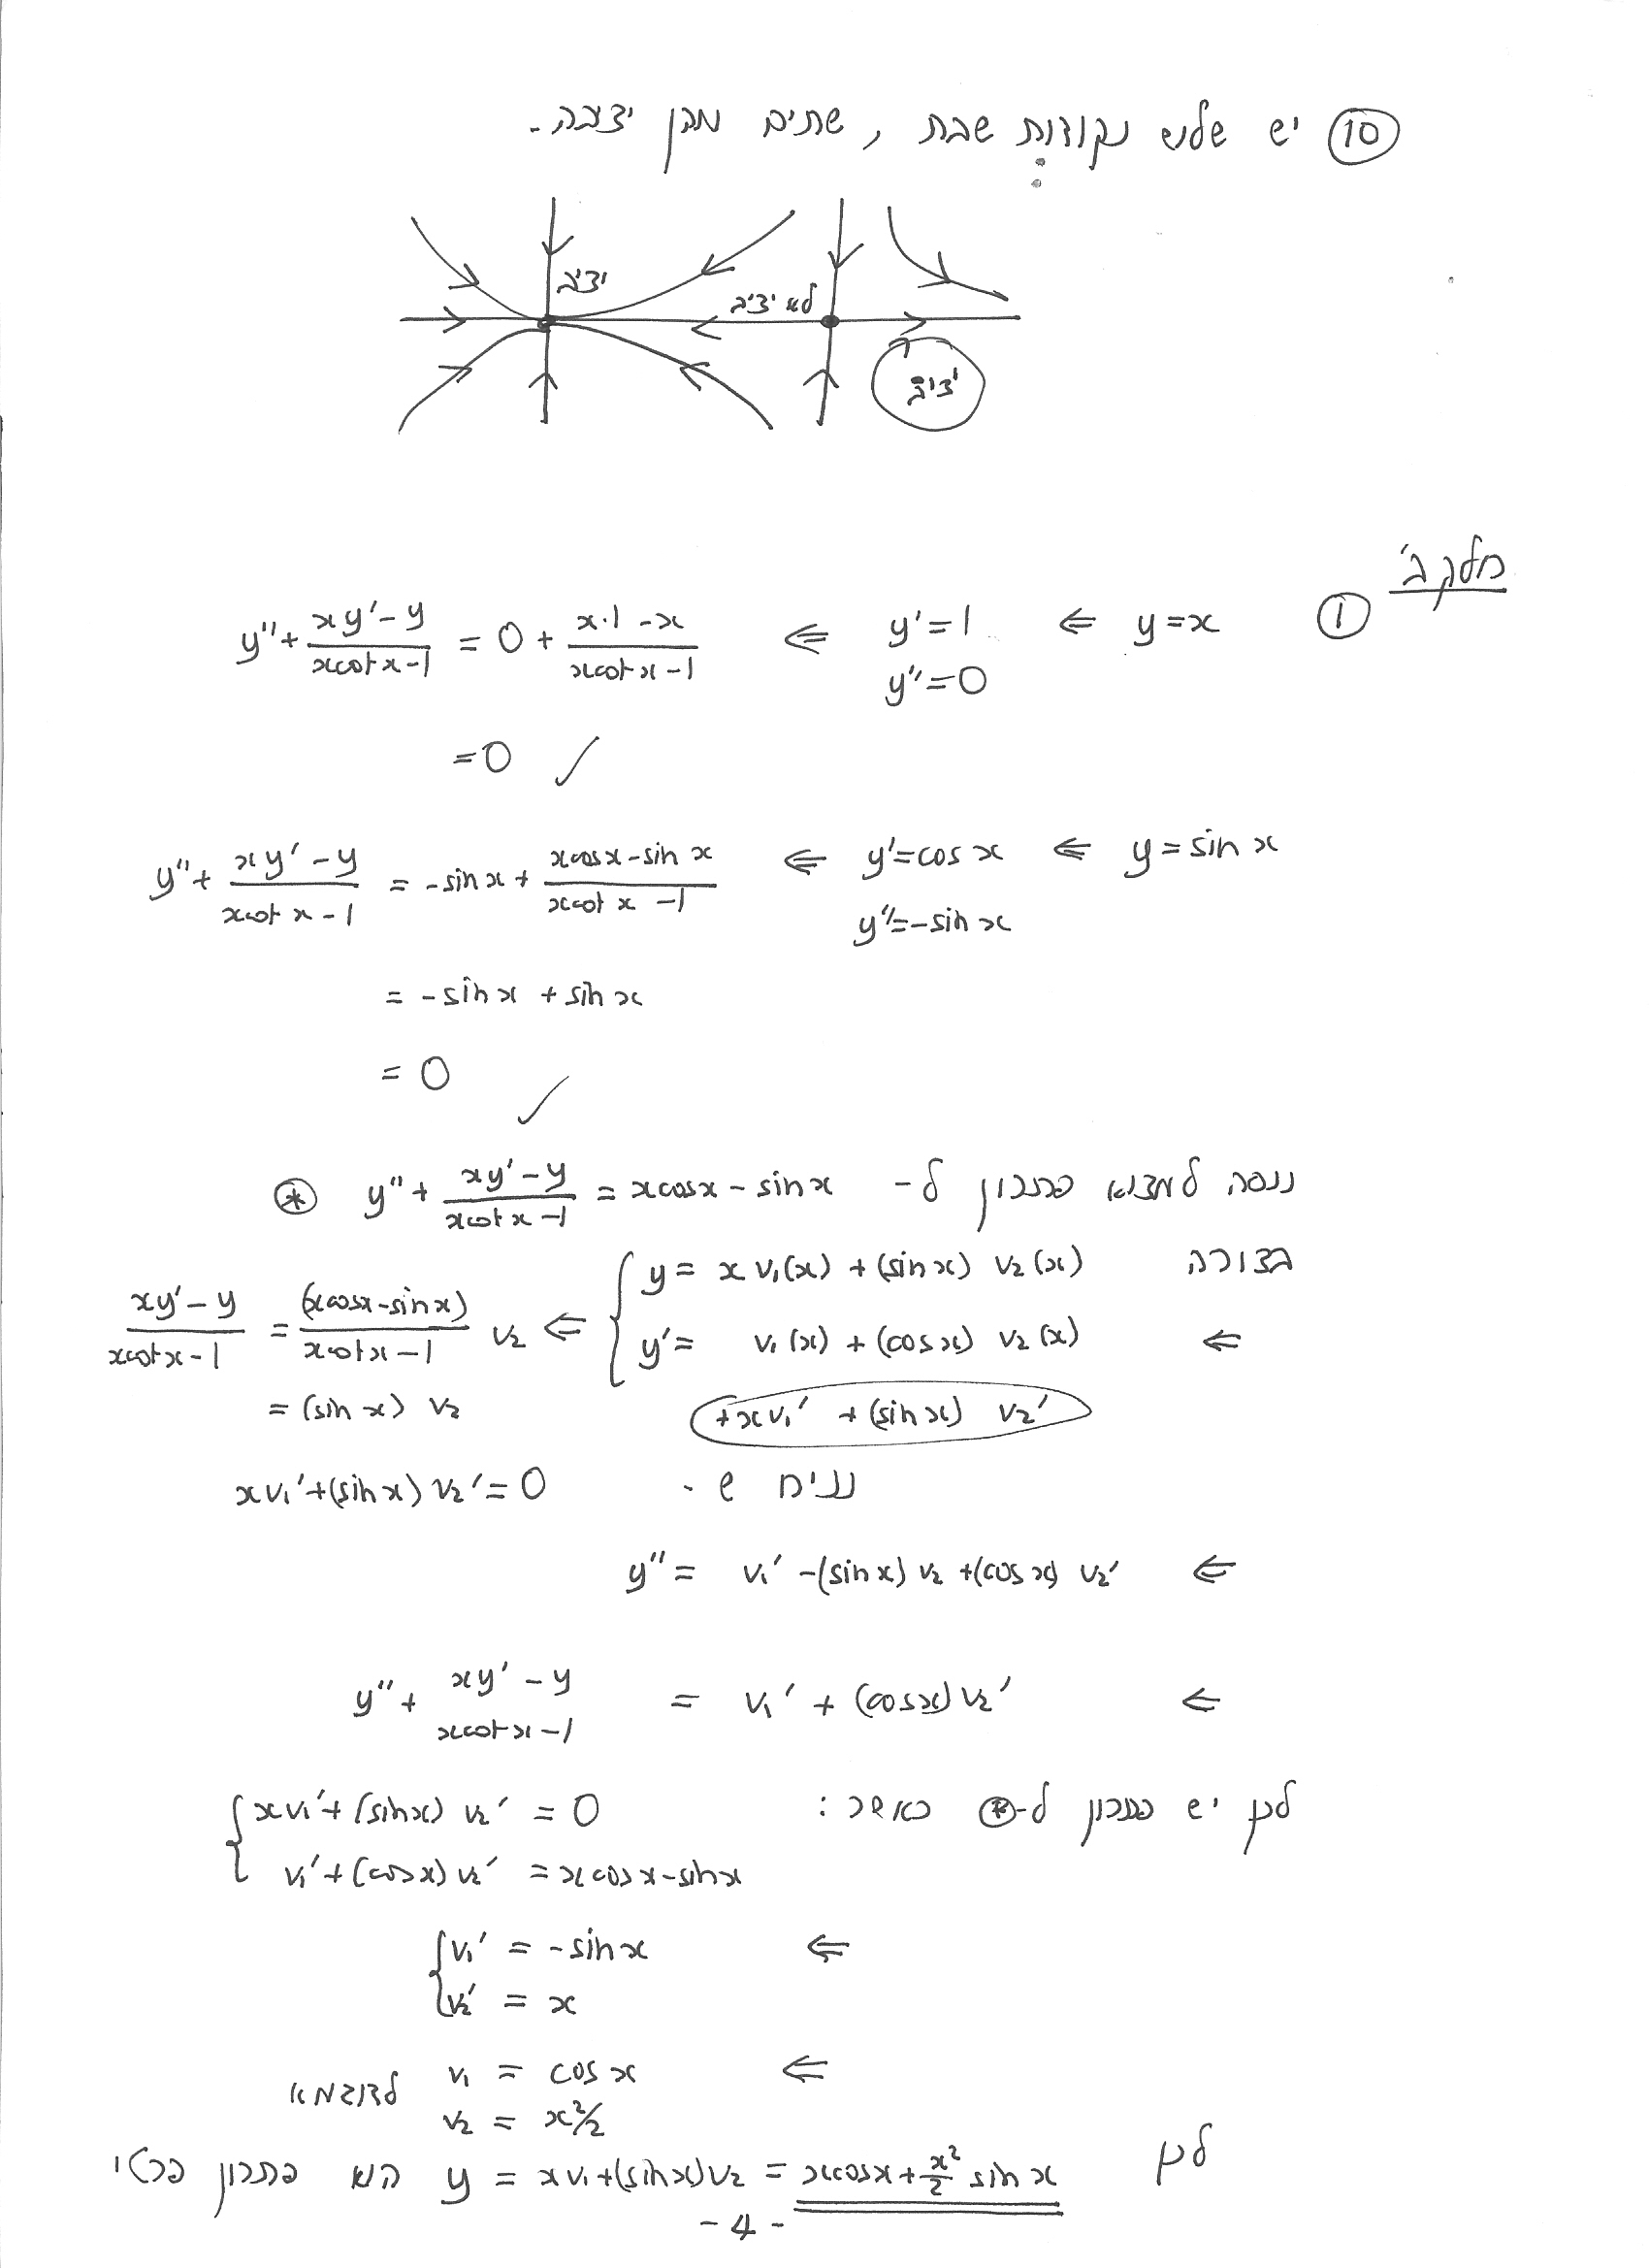 ⑩ יש שלוש נקודות שבת, שתים מהן יציבה.
יציב
לא יציב
יציב
חלק ב'
① y=x ⇐ y'=1 ⇐ y''+(xy'-y)/(xcotx-1) = 0+(x·1-x)/(xcotx-1)
y''=0
=0 ✓
y=sinx ⇐ y'=cosx ⇐ y''+(xy'-y)/(xcotx-1) = -sinx+(xcosx-sinx)/(xcotx-1)
y''=-sinx
= -sinx+sinx
= 0 ✓
ננסה למצוא פתרון ל- y''+(xy'-y)/(xcotx-1) = xcosx-sinx ⊛
בצורה { y= xv₁(x)+(sinx) v₂(x)
⇐ y'= v₁(x)+(cosx) v₂(x) ⇐ (xy'-y)/(xcotx-1) = (xcosx-sinx)/(xcotx-1) v₂
+xv₁'+(sinx) v₂'
= (sinx) v₂
נניח ש- xv₁'+(sinx) v₂'=0
⇐ y''= v₁'-(sinx) v₂+(cosx) v₂'
⇐ y''+(xy'-y)/(xcotx-1) = v₁'+(cosx) v₂'
לכן יש פתרון ל-⊛ כאשר: { xv₁'+(sinx) v₂' = 0
v₁'+(cosx) v₂' = xcosx-sinx
⇐ { v₁' = -sinx
v₂' = x
⇐ v₁ = cosx
לדוגמא
v₂ = x²/2
לכן y = xv₁+(sinx)v₂ = xcosx+x²/2 sinx הוא פתרון פרטי
-4-